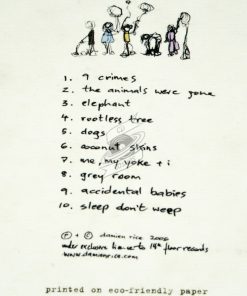 1. 9 crimes
2. the animals were gone
3. elephant
4. rootless tree
5. dogs
6. coconut skins
7. me, my yoke + i
8. grey room
9. accidental babies
10. sleep don't weep
℗ + © damien rice 2006
under exclusive licence to 14th floor records
www.damienrice.com
printed on eco-friendly paper